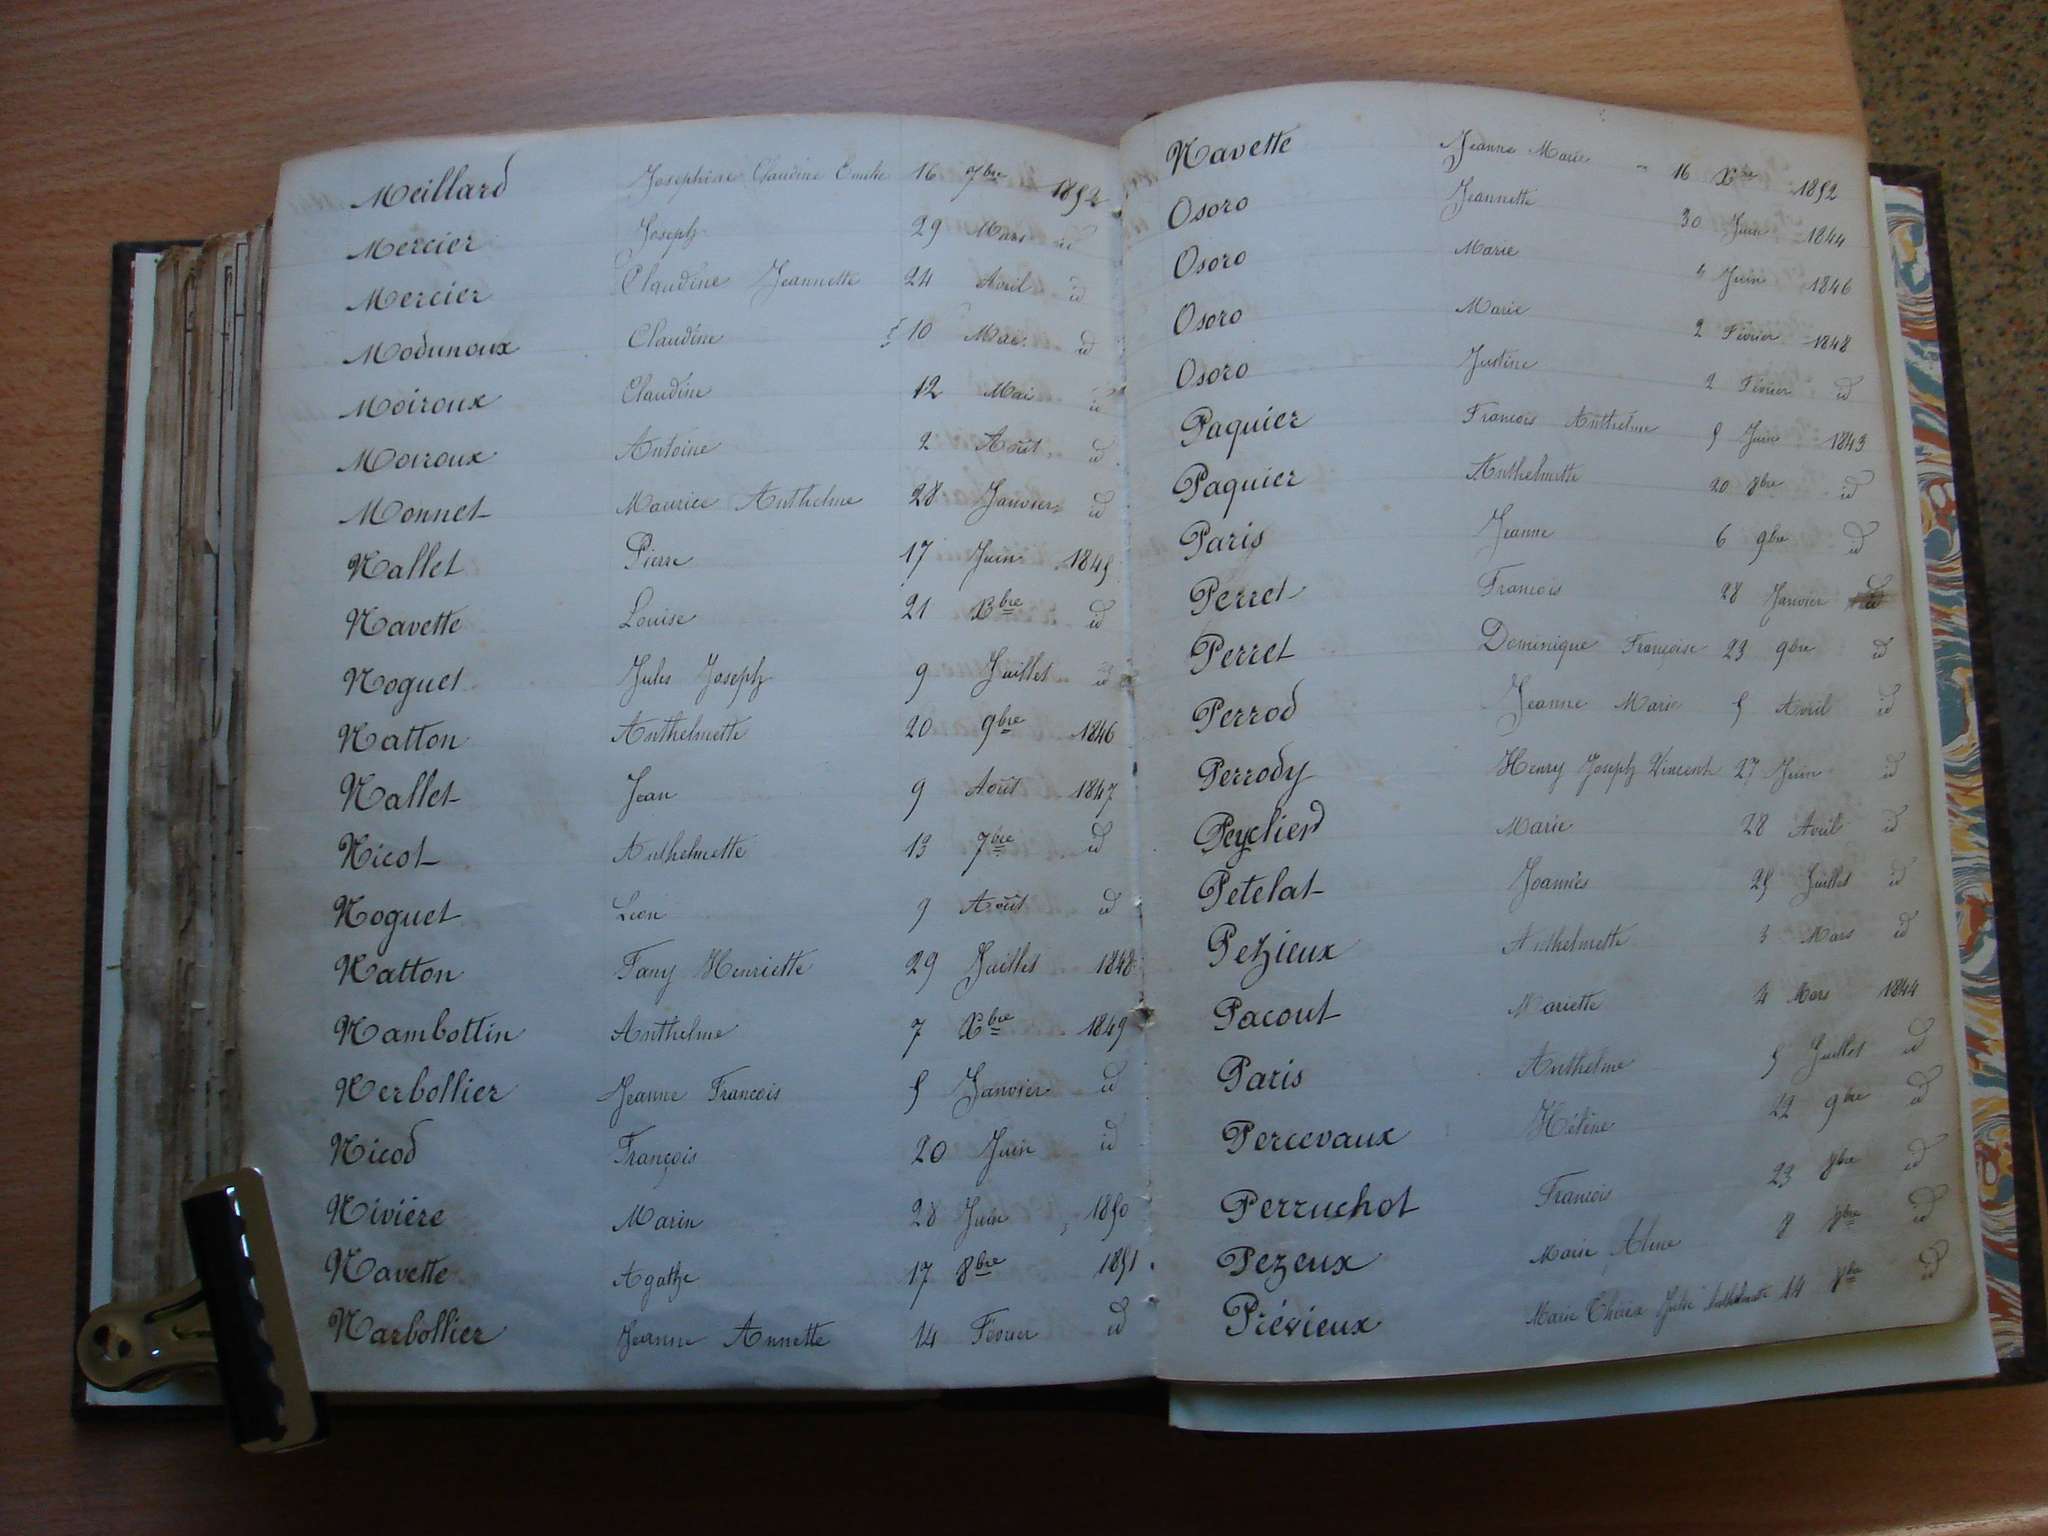 Meillard Josephine Claudine 16 7bre 1852
Mercier Joseph 29 Mars id
Mercier Claudine Jeannette 24 Avril id
Modunoux Claudine 10 Mai id
Moiroux Claudine 12 Mai id
Moiroux Antoine 2 Août id
Monnet Maurice Anthelme 28 Janvier id
Nallet Pierre 17 Juin 1845
Navette Louise 21 Xbre id
Noguet Jules Joseph 9 Juillet id
Natton Anthelmette 20 9bre 1846
Nallet Jean 9 Août 1847
Nicot Anthelmette 13 7bre id
Noguet Leon 9 Août id
Natton Fany Henriette 29 Juillet 1848
Nambottin Anthelme 7 Xbre 1849
Nerbollier Jeanne Francois 5 Janvier id
Nicod François 20 Juin id
Nivière Marin 28 Juin 1850
Navette Agathe 17 8bre 1851
Narbollier Jeanne Annette 14 Février id
Navette Jeanne Marie 16 Xbre 1852
Osoro Jeannette 30 Juin 1844
Osoro Marie " Juin 1846
Osoro Marie 2 Février 1848
Osoro Justine 2 Février id
Paquier Francois Anthelme 5 Juin 1843
Paquier Anthelmette 20 8bre id
Paris Jeanne 6 9bre id
Perret Francois 28 Janvier id
Perret Dominique Françoise 23 9bre id
Perrod Jeanne Marie 5 Avril id
Perrody Henry Joseph Vincent 27 Juin id
Peyclierd Marie 28 Avril id
Petelat Joannès 25 Juillet id
Pezieux Anthelmette 3 Mars id
Pacout Mariette 4 Mars 1844
Paris Anthelme 5 Juillet id
Percevaux Hélène 22 9bre id
Perruchot Francois 23 8bre id
Pezeux Marie Aline 8 7bre id
Prévieux Marie Julie Anthelmette 14 8bre id